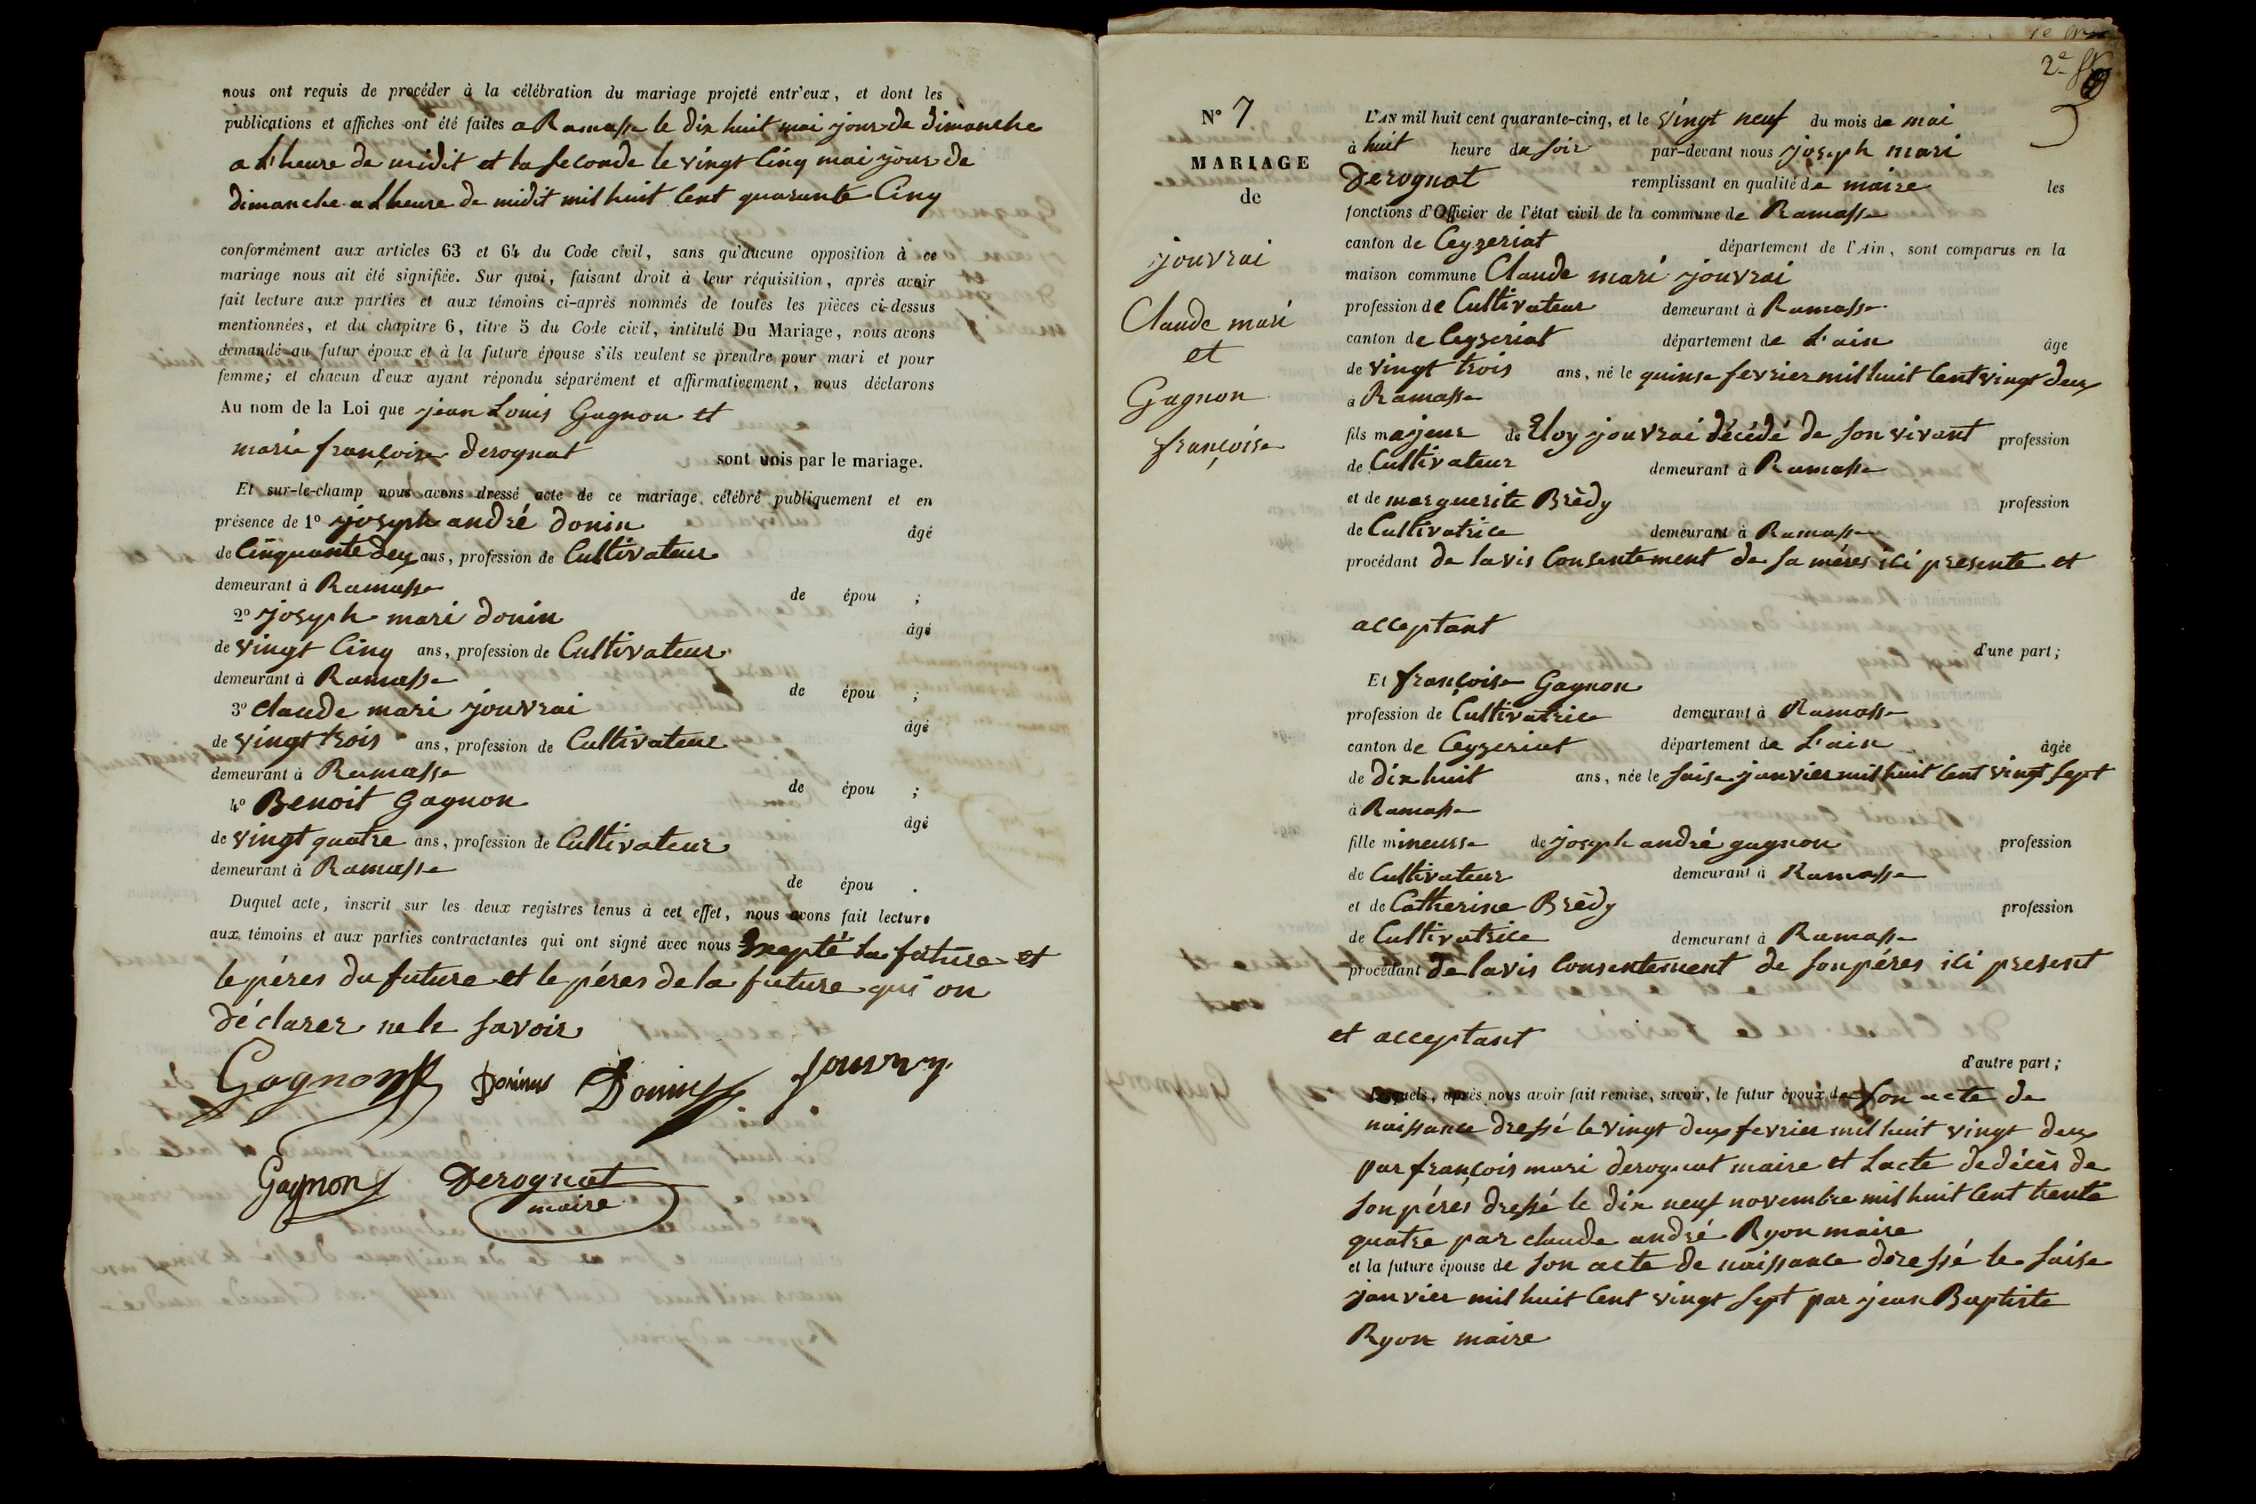 nous ont requis de procéder à la célébration du mariage projeté entr'eux, et dont les
publications et affiches ont été faites a Ramasse le dix huit mai jour de dimanche
a d'heure de midit et la seconde le vingt Cinq mai jour de
dimanche a d heure de midit mil huit Cent quarante Cinq
conformément aux articles 63 et 64 du Code civil, sans qu'aucune opposition à ce
mariage nous ait été signifiée. Sur quoi, faisant droit à leur réquisition, après avoir
fait lecture aux parties et aux témoins ci-après nommés de toutes les pièces ci-dessus
mentionnées, et du chapitre 6, titre 5 du Code civil, intitulé Du Mariage, nous avons
demandé au futur époux et à la future épouse s'ils veulent se prendre pour mari et pour
femme; et chacun d'eux ayant répondu séparément et affirmativement, nous déclarons
Au nom de la Loi que jean Louis Gagnon et
marie françoise derognat sont unis par le mariage.
Et sur-le-champ nous avons dressé acte de ce mariage célébré publiquement et en
présence de 1º joseph andré donin âgé
de Cinquante deux ans, profession de Cultivateur
demeurant à Ramasse de épou ;
2º joseph mari donin âgé
de vingt Cinq ans, profession de Cultivateur
demeurant à Ramasse de épou ;
3º claude mari jouvrai âgé
de vingt trois ans, profession de Cultivateur
demeurant à Ramasse de épou ;
4º Benoit Gagnon âgé
de vingt quatre ans, profession de Cultivateur
demeurant à Ramasse de épou .
Duquel acte, inscrit sur les deux registres tenus à cet effet, nous avons fait lecture
aux témoins et aux parties contractantes qui ont signé avec nous Excepté la future et
le péres du future et le péres de la future qui on
déclarer ne le savoir
Gagnon Doninus Donin Jouvry
Gagnon Derognat
maire
2e
Nº 7
MARIAGE
de
jouvrai
Claude mari
et
Gagnon
françoise
L'AN mil huit cent quarante-cinq, et le vingt neuf du mois de mai
à huit heure du soir par-devant nous joseph mari
Derognat remplissant en qualité de maire les
fonctions d'Officier de l'état civil de la commune de Ramasse
canton de Ceyzeriat département de l'Ain, sont comparus en la
maison commune Claude mari jouvrai
profession de Cultivateur demeurant à Ramasse
canton de Ceyzeriat département de L'ain âge
de vingt trois ans, né le quinse fevrier mil huit Cent vingt deux
à Ramasse
fils majeur de Eloy jouvrai décédé de son vivant profession
de Cultivateur demeurant à Ramasse
et de marguerite Brèdy profession
de Cultivatrice demeurant à Ramasse
procédant de lavis Consentement de sa méres ici presente et
acceptant
d'une part;
Et françoise Gagnon
profession de Cultivatrice demeurant à Ramasse
canton de Ceyzeriat département de L'ain âgée
de dix huit ans, née le saise janvier mil huit Cent vingt sept
à Ramasse
fille mineusse de joseph andré gagnon profession
de Cultivateur demeurant à Ramasse
et de Catherine Brèdy profession
de Cultivatrice demeurant à Ramasse
procédant de lavis Consentement de son péres ici present
et acceptant
d'autre part;
Lesquels, après nous avoir fait remise, savoir, le futur époux de son acte de
naissance dressé le vingt deux fevrier mil huit vingt deux
par françois mari derognat maire et Lacte de décès de
son péres dressé le dix neuf novembre mil huit Cent trente
quatre par claude andré Ryon maire
et la future épouse de son acte de naissance déressé le saise
janvier mil huit Cent vingt sept par jean Baptiste
Ryon maire